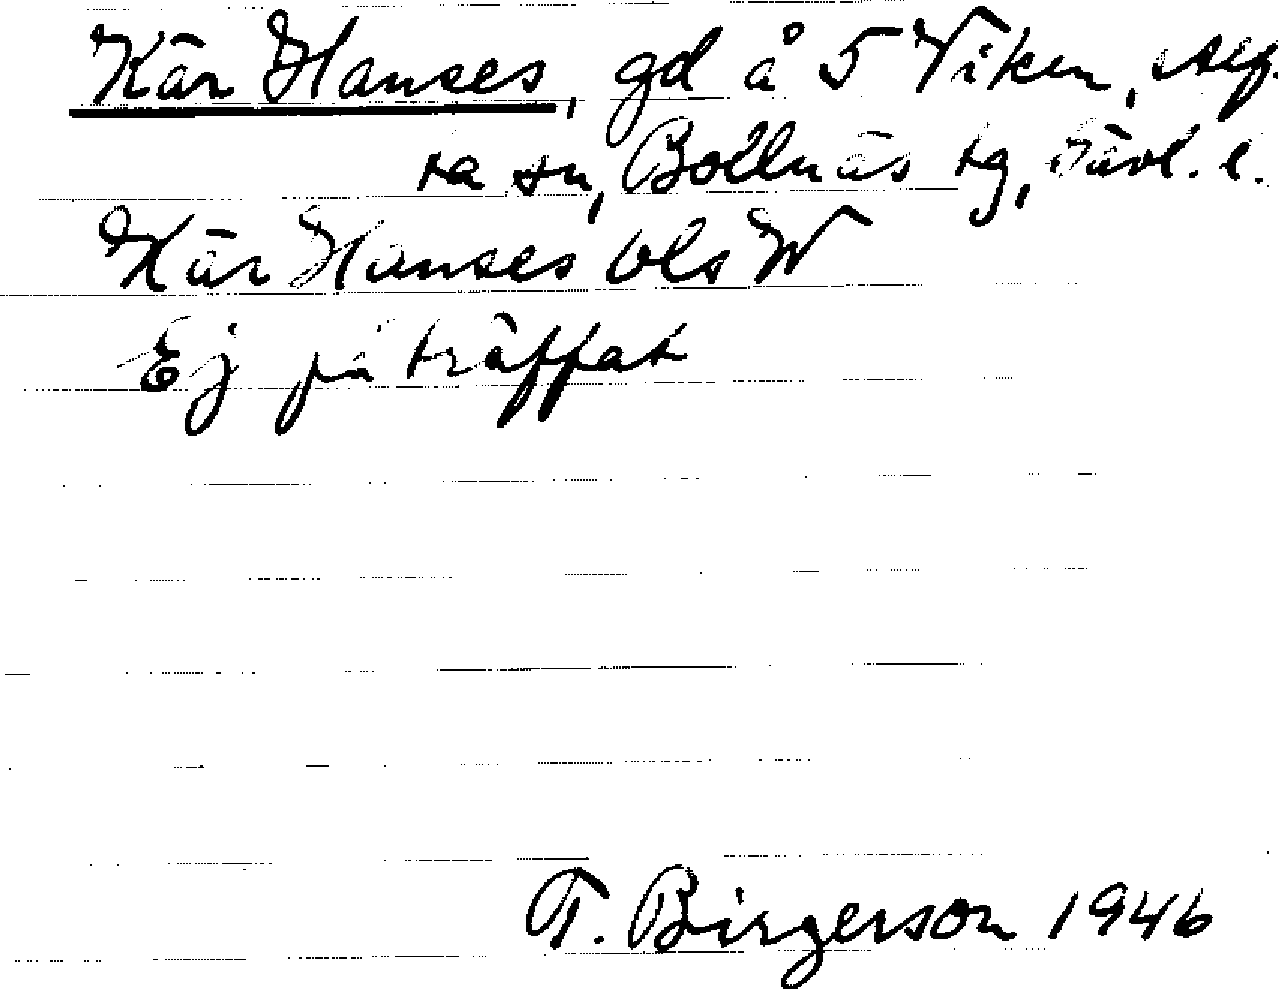 Kär Hanses, gd å 5 Viken, Alf-
ta sn, Bollnäs tg, Gävl. l.
Kär Hanses bls W
Ej påträffat
T. Birgerson 1946